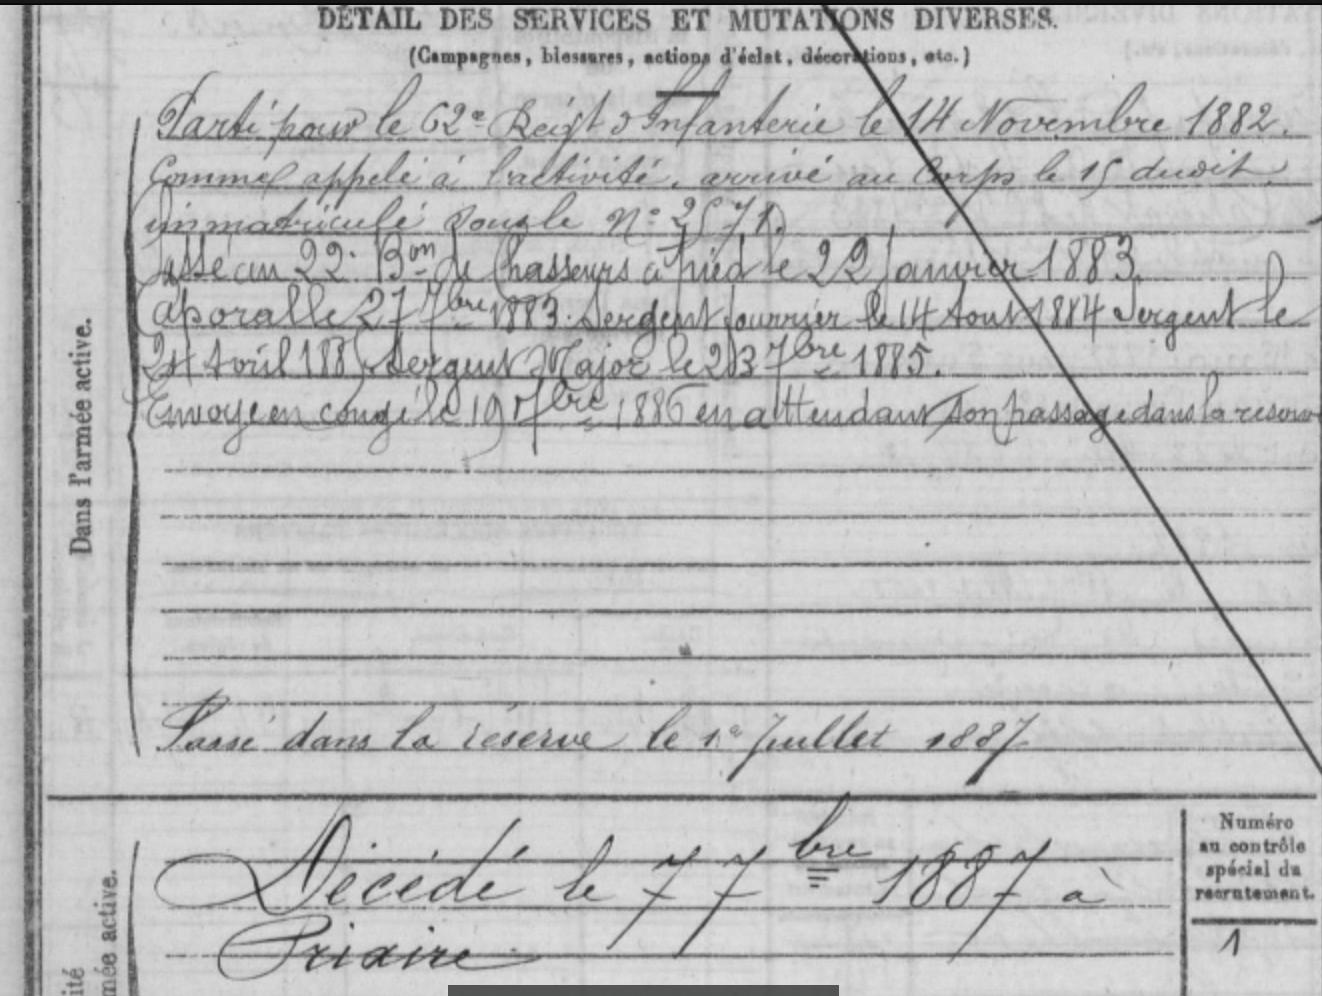 DÉTAIL DES SERVICES ET MUTATIONS DIVERSES.
(Campagnes, blessures, actions d'éclat, décorations, etc.)
Parti pour le 62e Reigt d'Infanterie le 14 Novembre 1882.
Comme appelé à l'activité. arrivé au Corps le 15 dudit.
immatriculé sous le No 2571.
Passé au 22e Bon de Chasseurs à pied le 22 Janvier 1883.
Caporal le 27 7bre 1883. Sergent fourrier le 14 Aout 1884 Sergent le
Avril Sergent Major le 7bre 1885.
Envoyé en congé le 19 7bre 1886 en attendant son passage dans la réserve
Dans l'armée active.
Passé dans la réserve le 1e Juillet 1887.
Décédé le 7 7bre 1887 à
Priaire
mée active.
ité
Numéro
au contrôle
spécial du
recrutement.
1